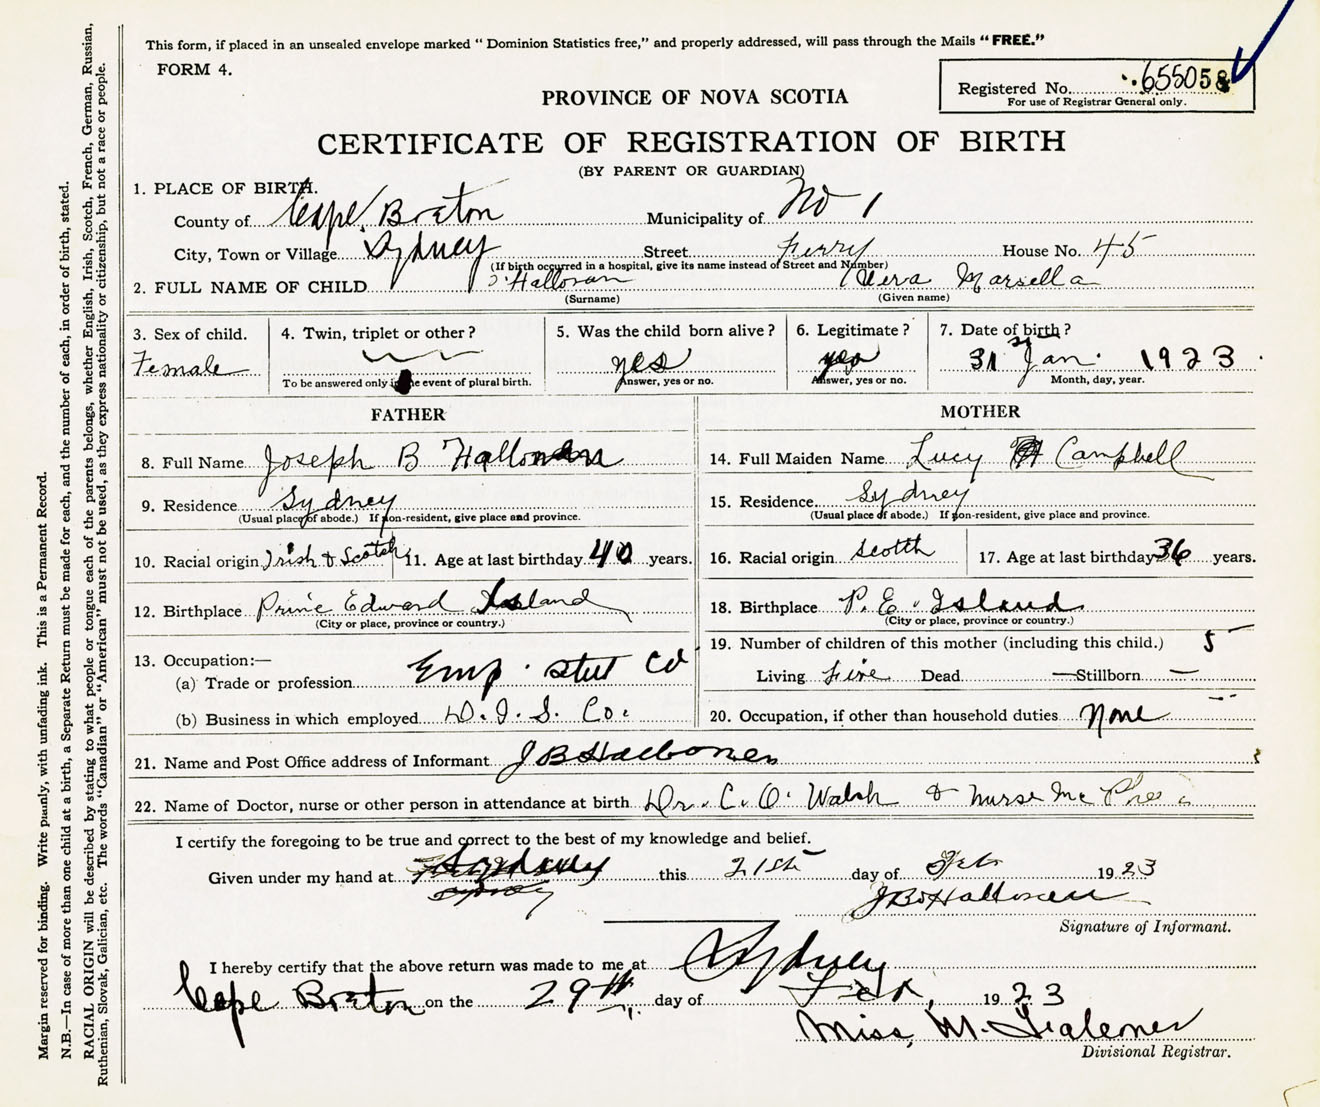 This form, if placed in an unsealed envelope marked " Dominion Statistics free," and properly addressed, will pass through the Mails "FREE."
FORM 4.
Registered No. 655058
For use of Registrar General only.
PROVINCE OF NOVA SCOTIA
CERTIFICATE OF REGISTRATION OF BIRTH
(BY PARENT OR GUARDIAN)
1. PLACE OF BIRTH.
County of Cape Breton Municipality of No 1
City, Town or Village Sydney Street Ferry House No. 45
(If birth occurred in a hospital, give its name instead of Street and Number)
2. FULL NAME OF CHILD O'Halloran Marsella
(Surname) (Given name)
3. Sex of child. 4. Twin, triplet or other? 5. Was the child born alive? 6. Legitimate? 7. Date of birth?
Female yes yes 31 Jan. 1923
To be answered only in the event of plural birth. Answer, yes or no. Answer, yes or no. Month, day, year.
FATHER MOTHER
8. Full Name Joseph B 14. Full Maiden Name Lucy Campbell
9. Residence Sydney 15. Residence Sydney
(Usual place of abode.) If non-resident, give place and province. (Usual place of abode.) If non-resident, give place and province.
10. Racial origin Irish & Scotch 11. Age at last birthday 40 years. 16. Racial origin Scotch 17. Age at last birthday 36 years.
12. Birthplace Prince Edward Island 18. Birthplace P. E. Island
(City or place, province or country.) (City or place, province or country.)
13. Occupation:— 19. Number of children of this mother (including this child.) 5
(a) Trade or profession Emp. Steel Co Living Five Dead — Stillborn —
(b) Business in which employed D. I. S. Co. 20. Occupation, if other than household duties None
21. Name and Post Office address of Informant J B
22. Name of Doctor, nurse or other person in attendance at birth Dr. C. O. Walsh & Nurse Mc Phee
I certify the foregoing to be true and correct to the best of my knowledge and belief.
Given under my hand at Sydney this 21st day of Feb 1923
Sydney
J B
Signature of Informant.
I hereby certify that the above return was made to me at Sydney
Cape Breton on the 29th day of Feb, 1923
Miss. M.
Divisional Registrar.
Margin reserved for binding. Write plainly, with unfading ink. This is a Permanent Record.
N.B.—In case of more than one child at a birth, a Separate Return must be made for each, and the number of each, in order of birth, stated.
RACIAL ORIGIN will be described by stating to what people or tongue each of the parents belongs, whether English, Irish, Scotch, French, German, Russian,
Ruthenian, Slovak, Galician, etc. The words "Canadian" or "American" must not be used, as they express nationality or citizenship, but not a race or people.